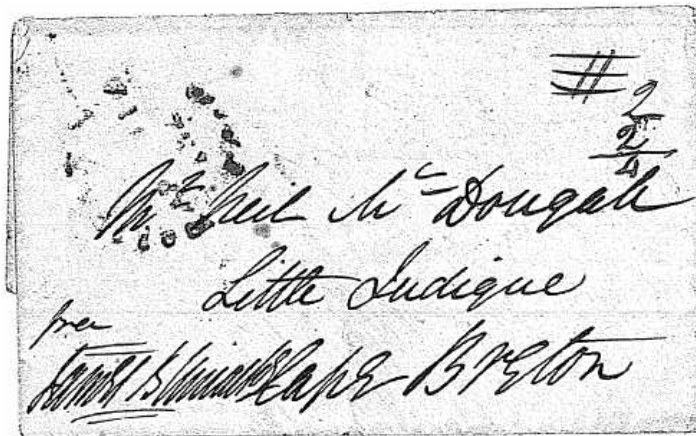 11
2
2
4
Mr Neil McDougall
Little Judique
free
James Cape Breton